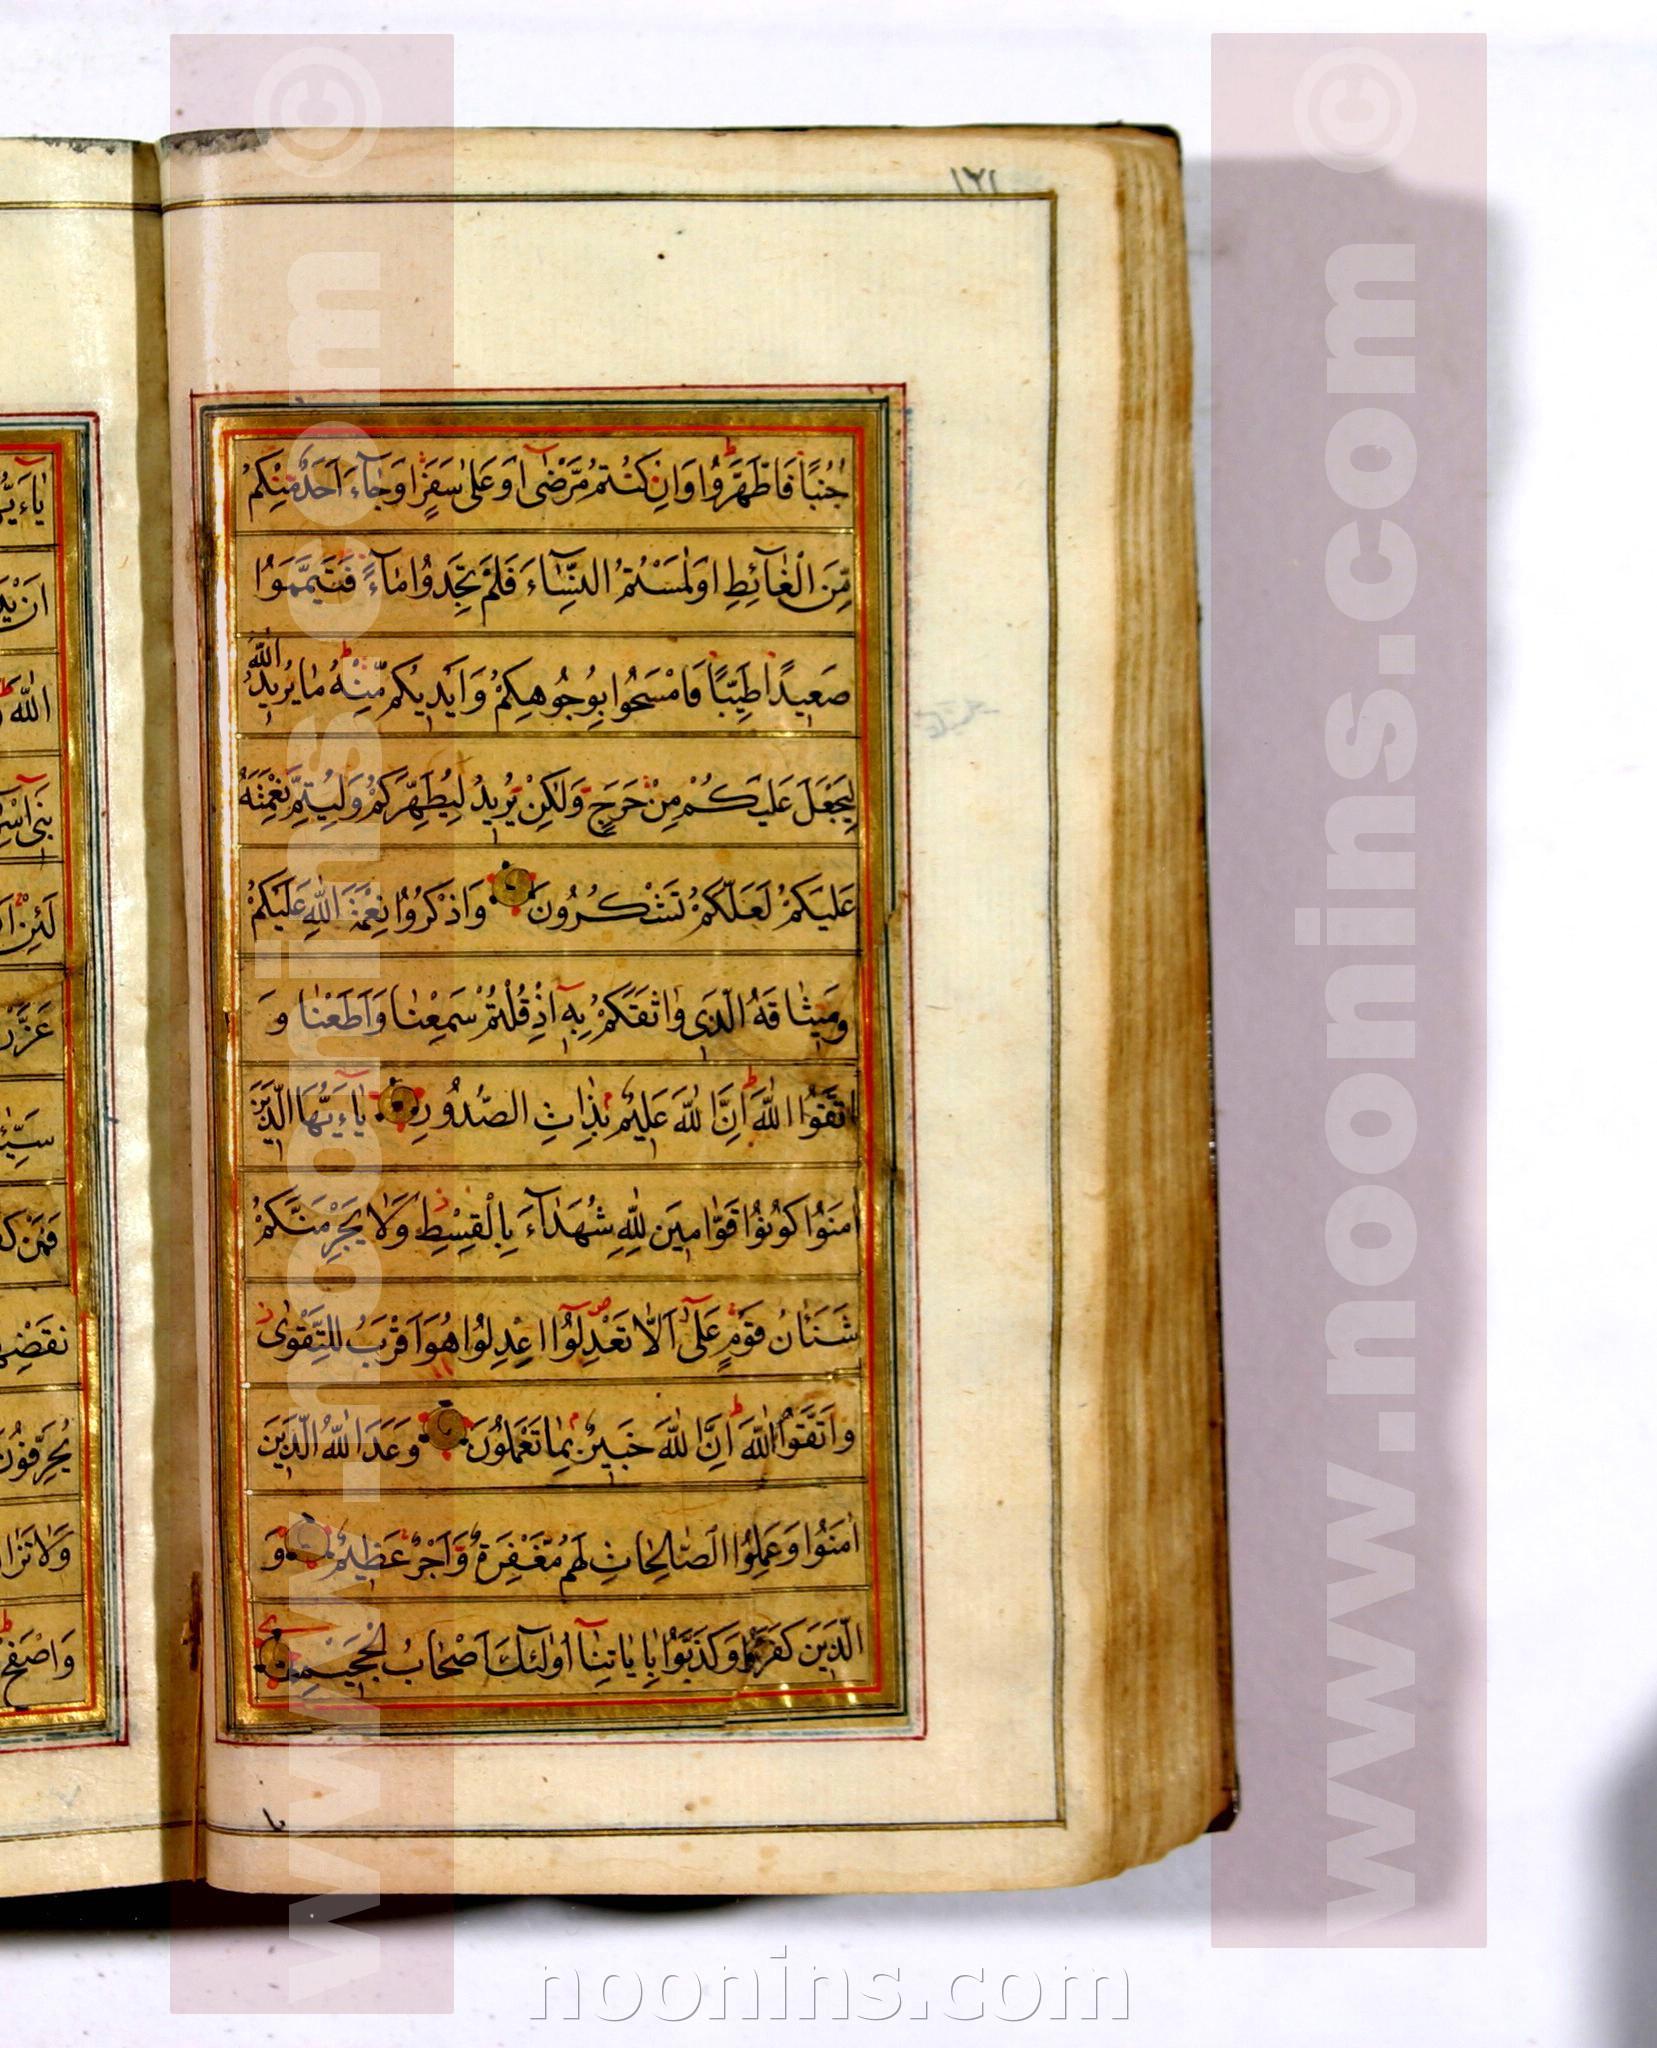 ١٢١
جُنُبًا فَاطَّهَّرُوا وَاِنْ كُنْتُمْ مَرْضٰٓى اَوْ عَلٰى سَفَرٍ اَوْ جَٓاءَ اَحَدٌ مِنْكُمْ
مِنَ الْغَٓائِطِ اَوْ لٰمَسْتُمُ النِّسَٓاءَ فَلَمْ تَجِدُوا مَٓاءً فَتَيَمَّمُوا
صَعِيدًا طَيِّبًا فَامْسَحُوا بِوُجُوهِكُمْ وَاَيْدِيكُمْ مِنْهُ مَا يُرِيدُ اللّٰهُ
لِيَجْعَلَ عَلَيْكُمْ مِنْ حَرَجٍ وَلٰكِنْ يُرِيدُ لِيُطَهِّرَكُمْ وَلِيُتِمَّ نِعْمَتَهُ
عَلَيْكُمْ لَعَلَّكُمْ تَشْكُرُونَ وَاذْكُرُوا نِعْمَةَ اللّٰهِ عَلَيْكُمْ
وَمِيثَاقَهُ الَّذِى وَاثَقَكُمْ بِهِٓ اِذْ قُلْتُمْ سَمِعْنَا وَاَطَعْنَا وَ
اتَّقُوا اللّٰهَ اِنَّ اللّٰهَ عَلِيمٌ بِذَاتِ الصُّدُورِ يَٓاءَيُّهَا الَّذِينَ
اٰمَنُوا كُونُوا قَوَّامِينَ لِلّٰهِ شُهَدَٓاءَ بِالْقِسْطِ وَلَا يَجْرِمَنَّكُمْ
شَنَئَانُ قَوْمٍ عَلٰٓى اَلَّا تَعْدِلُوا اِعْدِلُوا هُوَ اَقْرَبُ لِلتَّقْوٰى
وَاتَّقُوا اللّٰهَ اِنَّ اللّٰهَ خَبِيرٌ بِمَا تَعْمَلُونَ وَعَدَ اللّٰهُ الَّذِينَ
اٰمَنُوا وَعَمِلُوا الصَّالِحَاتِ لَهُمْ مَغْفِرَةٌ وَاَجْرٌ عَظِيمٌ وَ
الَّذِينَ كَفَرُوا وَكَذَّبُوا بِاٰيَاتِنَٓا اُولٰئِكَ اَصْحَابُ الْجَحِيمِ
© www.noonins.com
© www.noonins.com
noonins.com